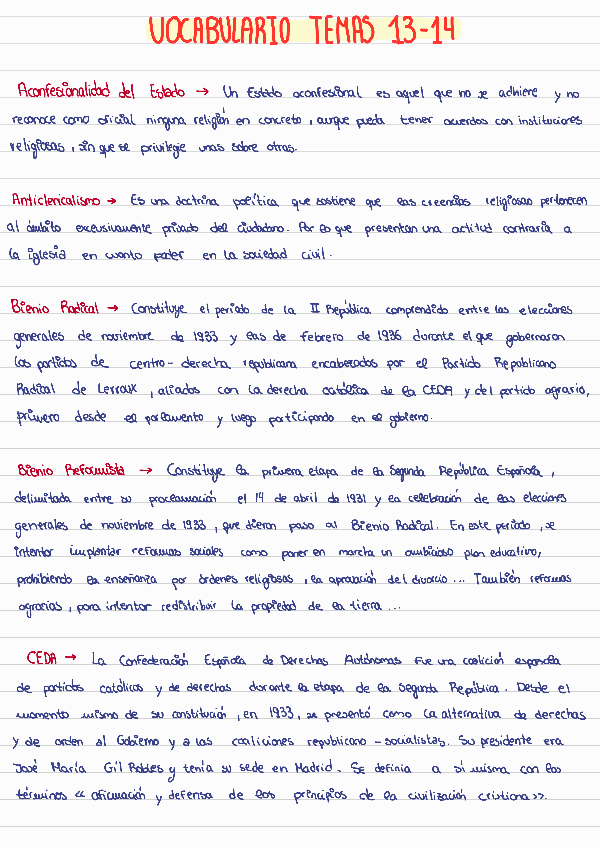 VOCABULARIO TEMAS 13-14
Aconfesionalidad del Estado → Un Estado aconfesional es aquel que no se adhiere y no
reconoce como oficial ninguna religión en concreto, aunque pueda tener acuerdos con instituciones
religiosas, sin que se privilegie unas sobre otras.
Anticlericalismo → Es una doctrina política que sostiene que las creencias religiosas pertenecen
al ámbito exclusivamente privado del ciudadano. Por lo que presentan una actitud contraria a
la iglesia en cuanto poder en la sociedad civil.
Bienio Radical → Constituye el periodo de la II República comprendido entre las elecciones
generales de noviembre de 1933 y las de febrero de 1936 durante el que gobernaron
los partidos de centro-derecha republicana encabezados por el Partido Republicano
Radical de Lerroux, aliados con la derecha católica de la CEDA y del partido agrario,
primero desde el parlamento y luego participando en el gobierno.
Bienio Reformista → Constituye la primera etapa de la Segunda República Española,
delimitada entre su proclamación el 14 de abril de 1931 y la celebración de las elecciones
generales de noviembre de 1933, que dieron paso al Bienio Radical. En este periodo, se
intentar implantar reformas sociales como poner en marcha un ambicioso plan educativo,
prohibiendo la enseñanza por órdenes religiosas, la aprobación del divorcio... También reformas
agrarias, para intentar redistribuir la propiedad de la tierra...
CEDA → La Confederación Española de Derechas Autónomas fue una coalición española
de partidos católicos y de derechas durante la etapa de la Segunda República. Desde el
momento mismo de su constitución, en 1933, se presentó como la alternativa de derechas
y de orden al Gobierno y a las coaliciones republicano-socialistas. Su presidente era
José María Gil Robles y tenía su sede en Madrid. Se definía a sí misma con los
términos << afirmación y defensa de los principios de la civilización cristiana >>.